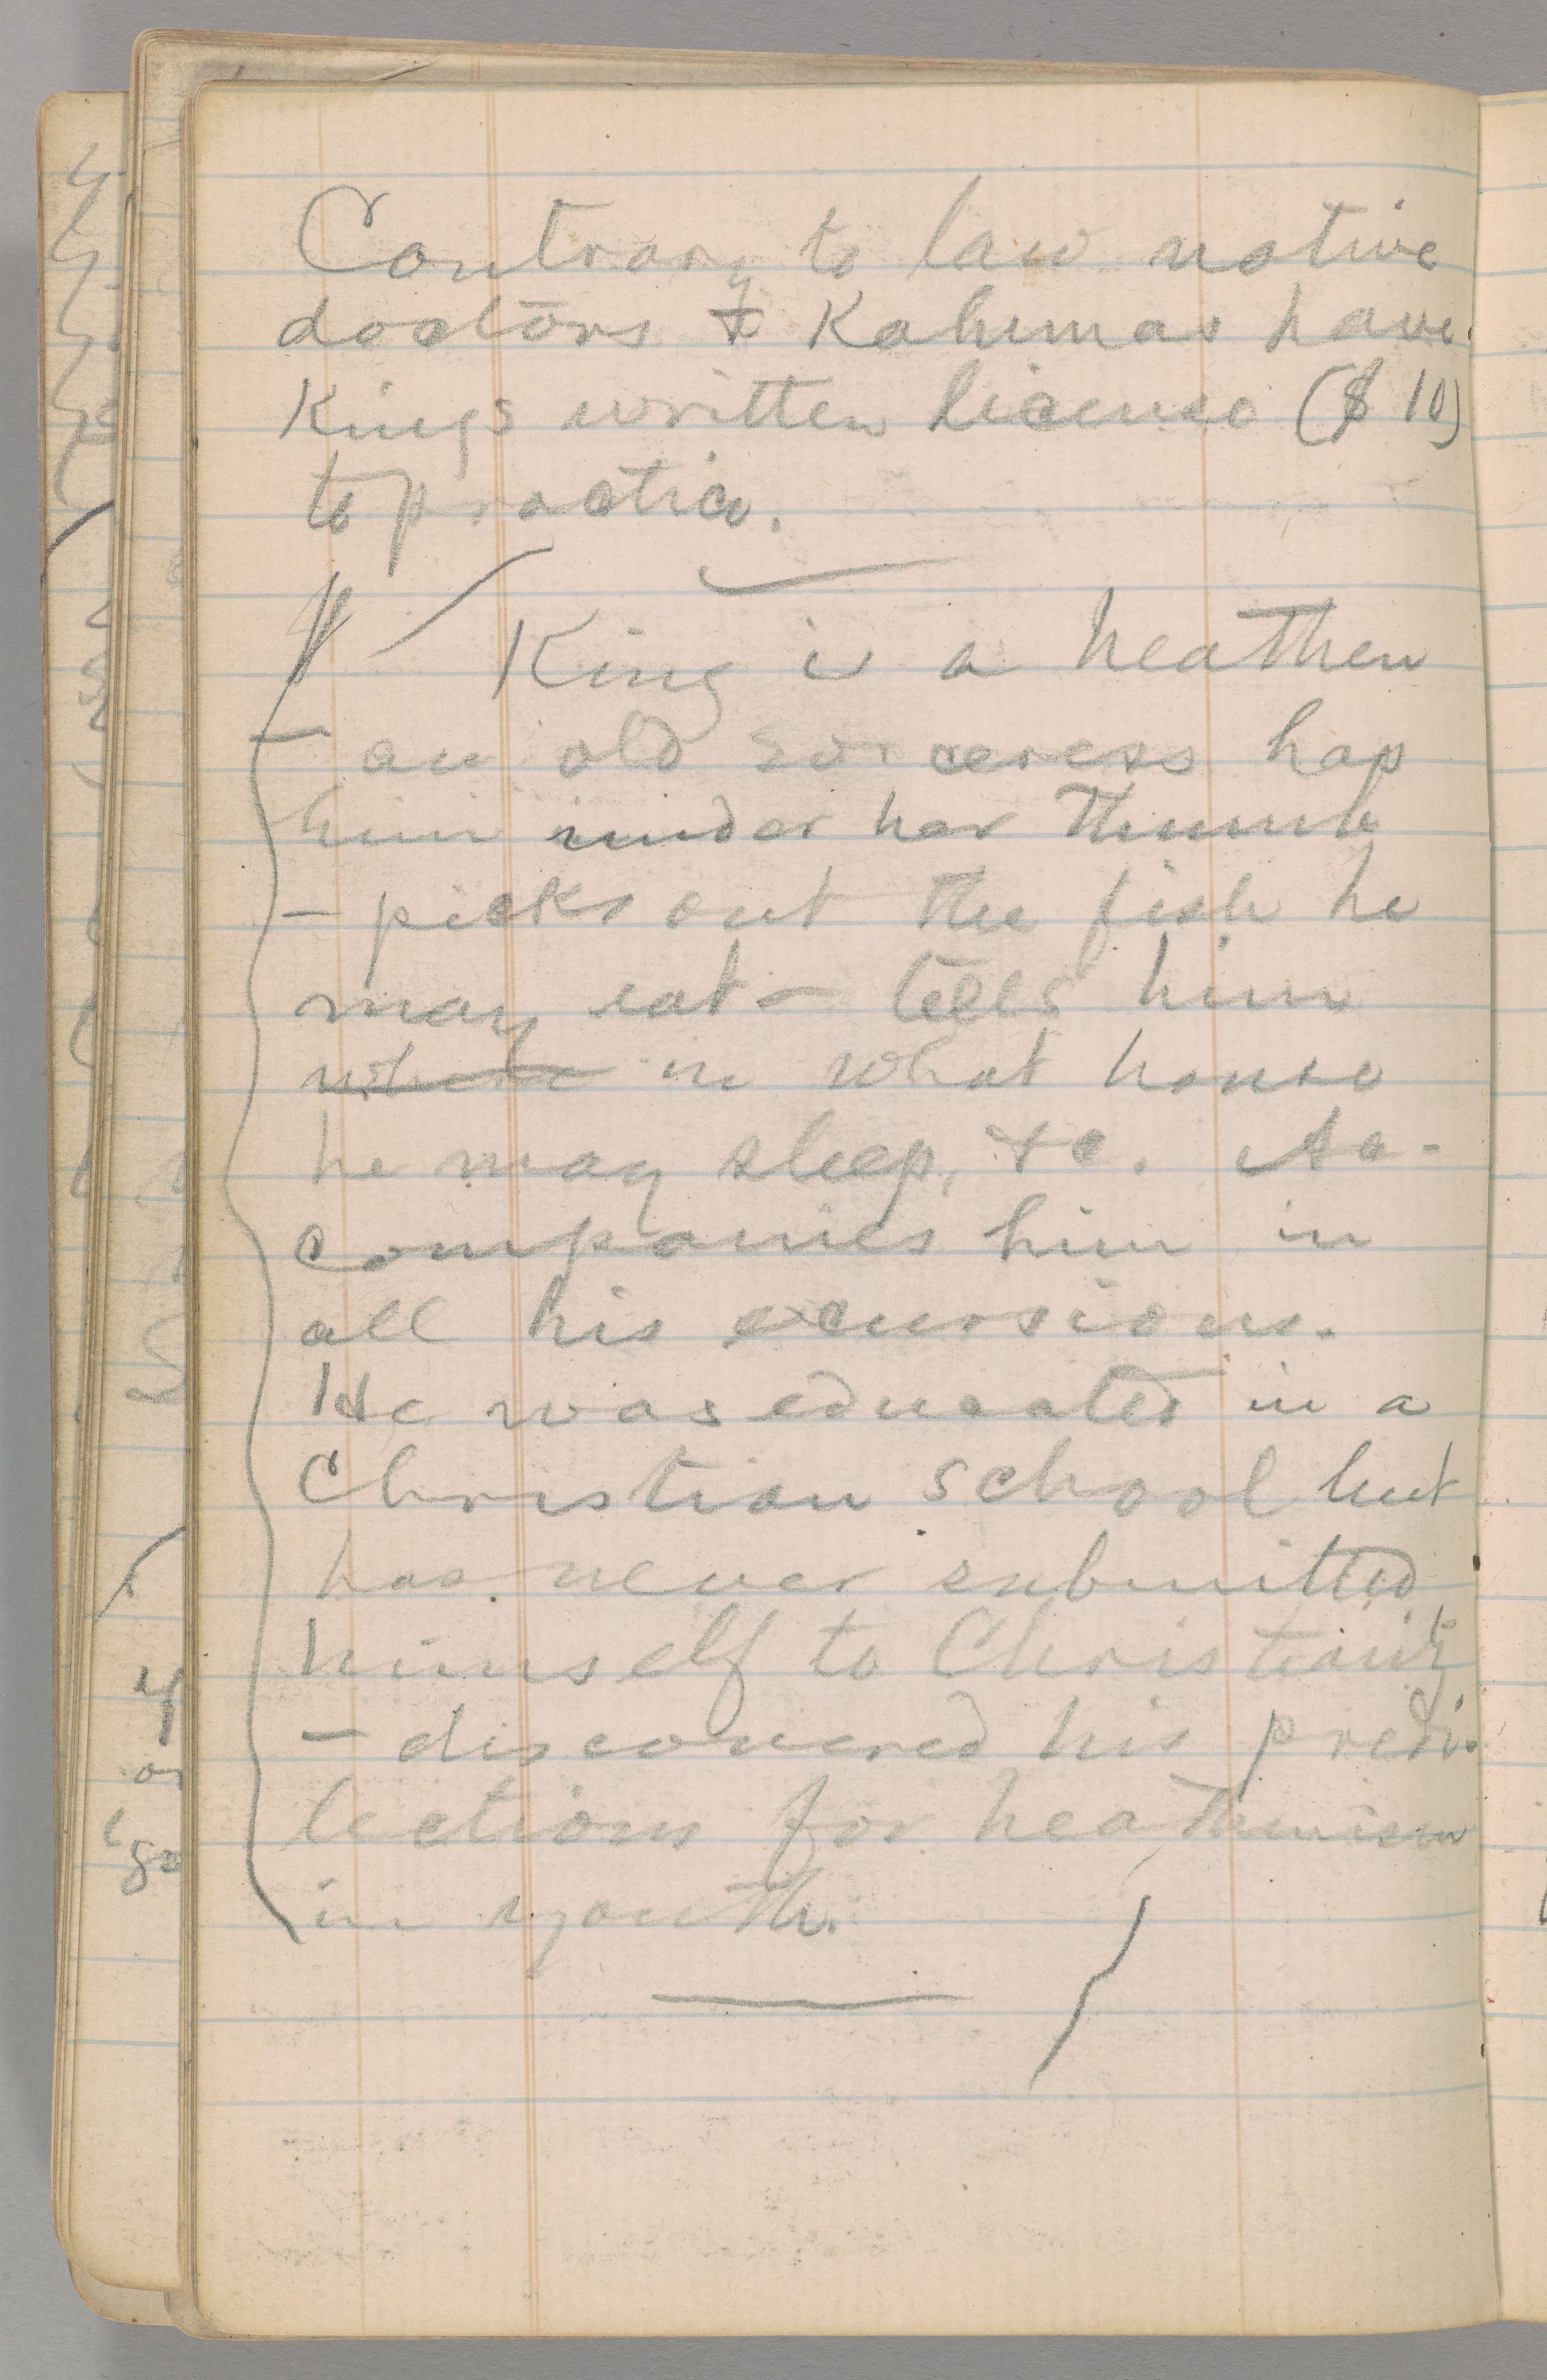 Contrary to law native
doctors & Kahunas have
Kings written license ($10)
to practice.
King is a heathen
— an old sorceress has
him under her thumb
— picks out the fish he
may eat — tells him
where in what house
he may sleep, &c. Ac-
companies him in
all his excursions.
He was educated in a
Christian school but
has never submitted
himself to Christianity
— discovered his predi-
lections for heathenism
in youth.